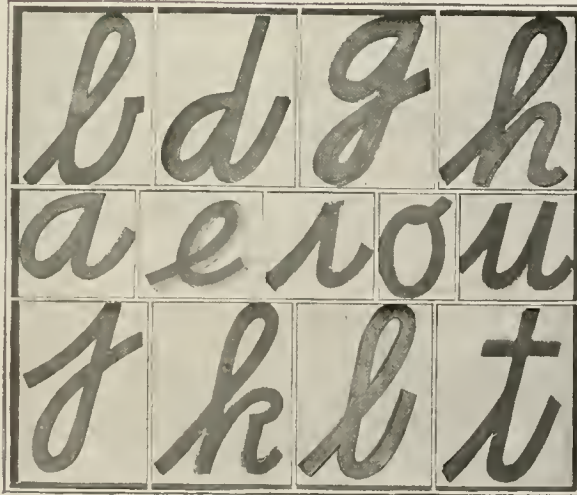 b d g h
a e i o u
j k l t